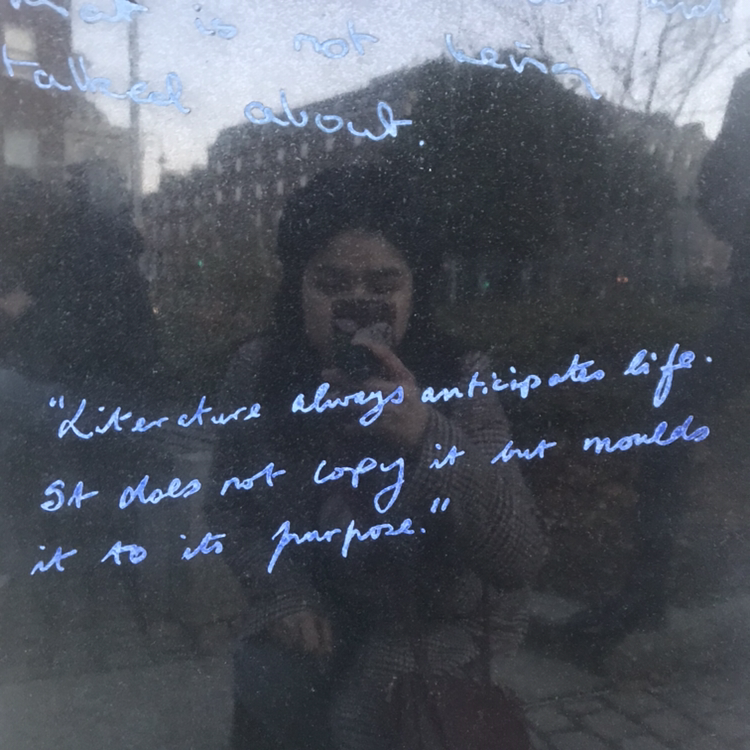 that is not being
talked about.
"Literature always anticipates life.
It does not copy it but moulds
it to its purpose."